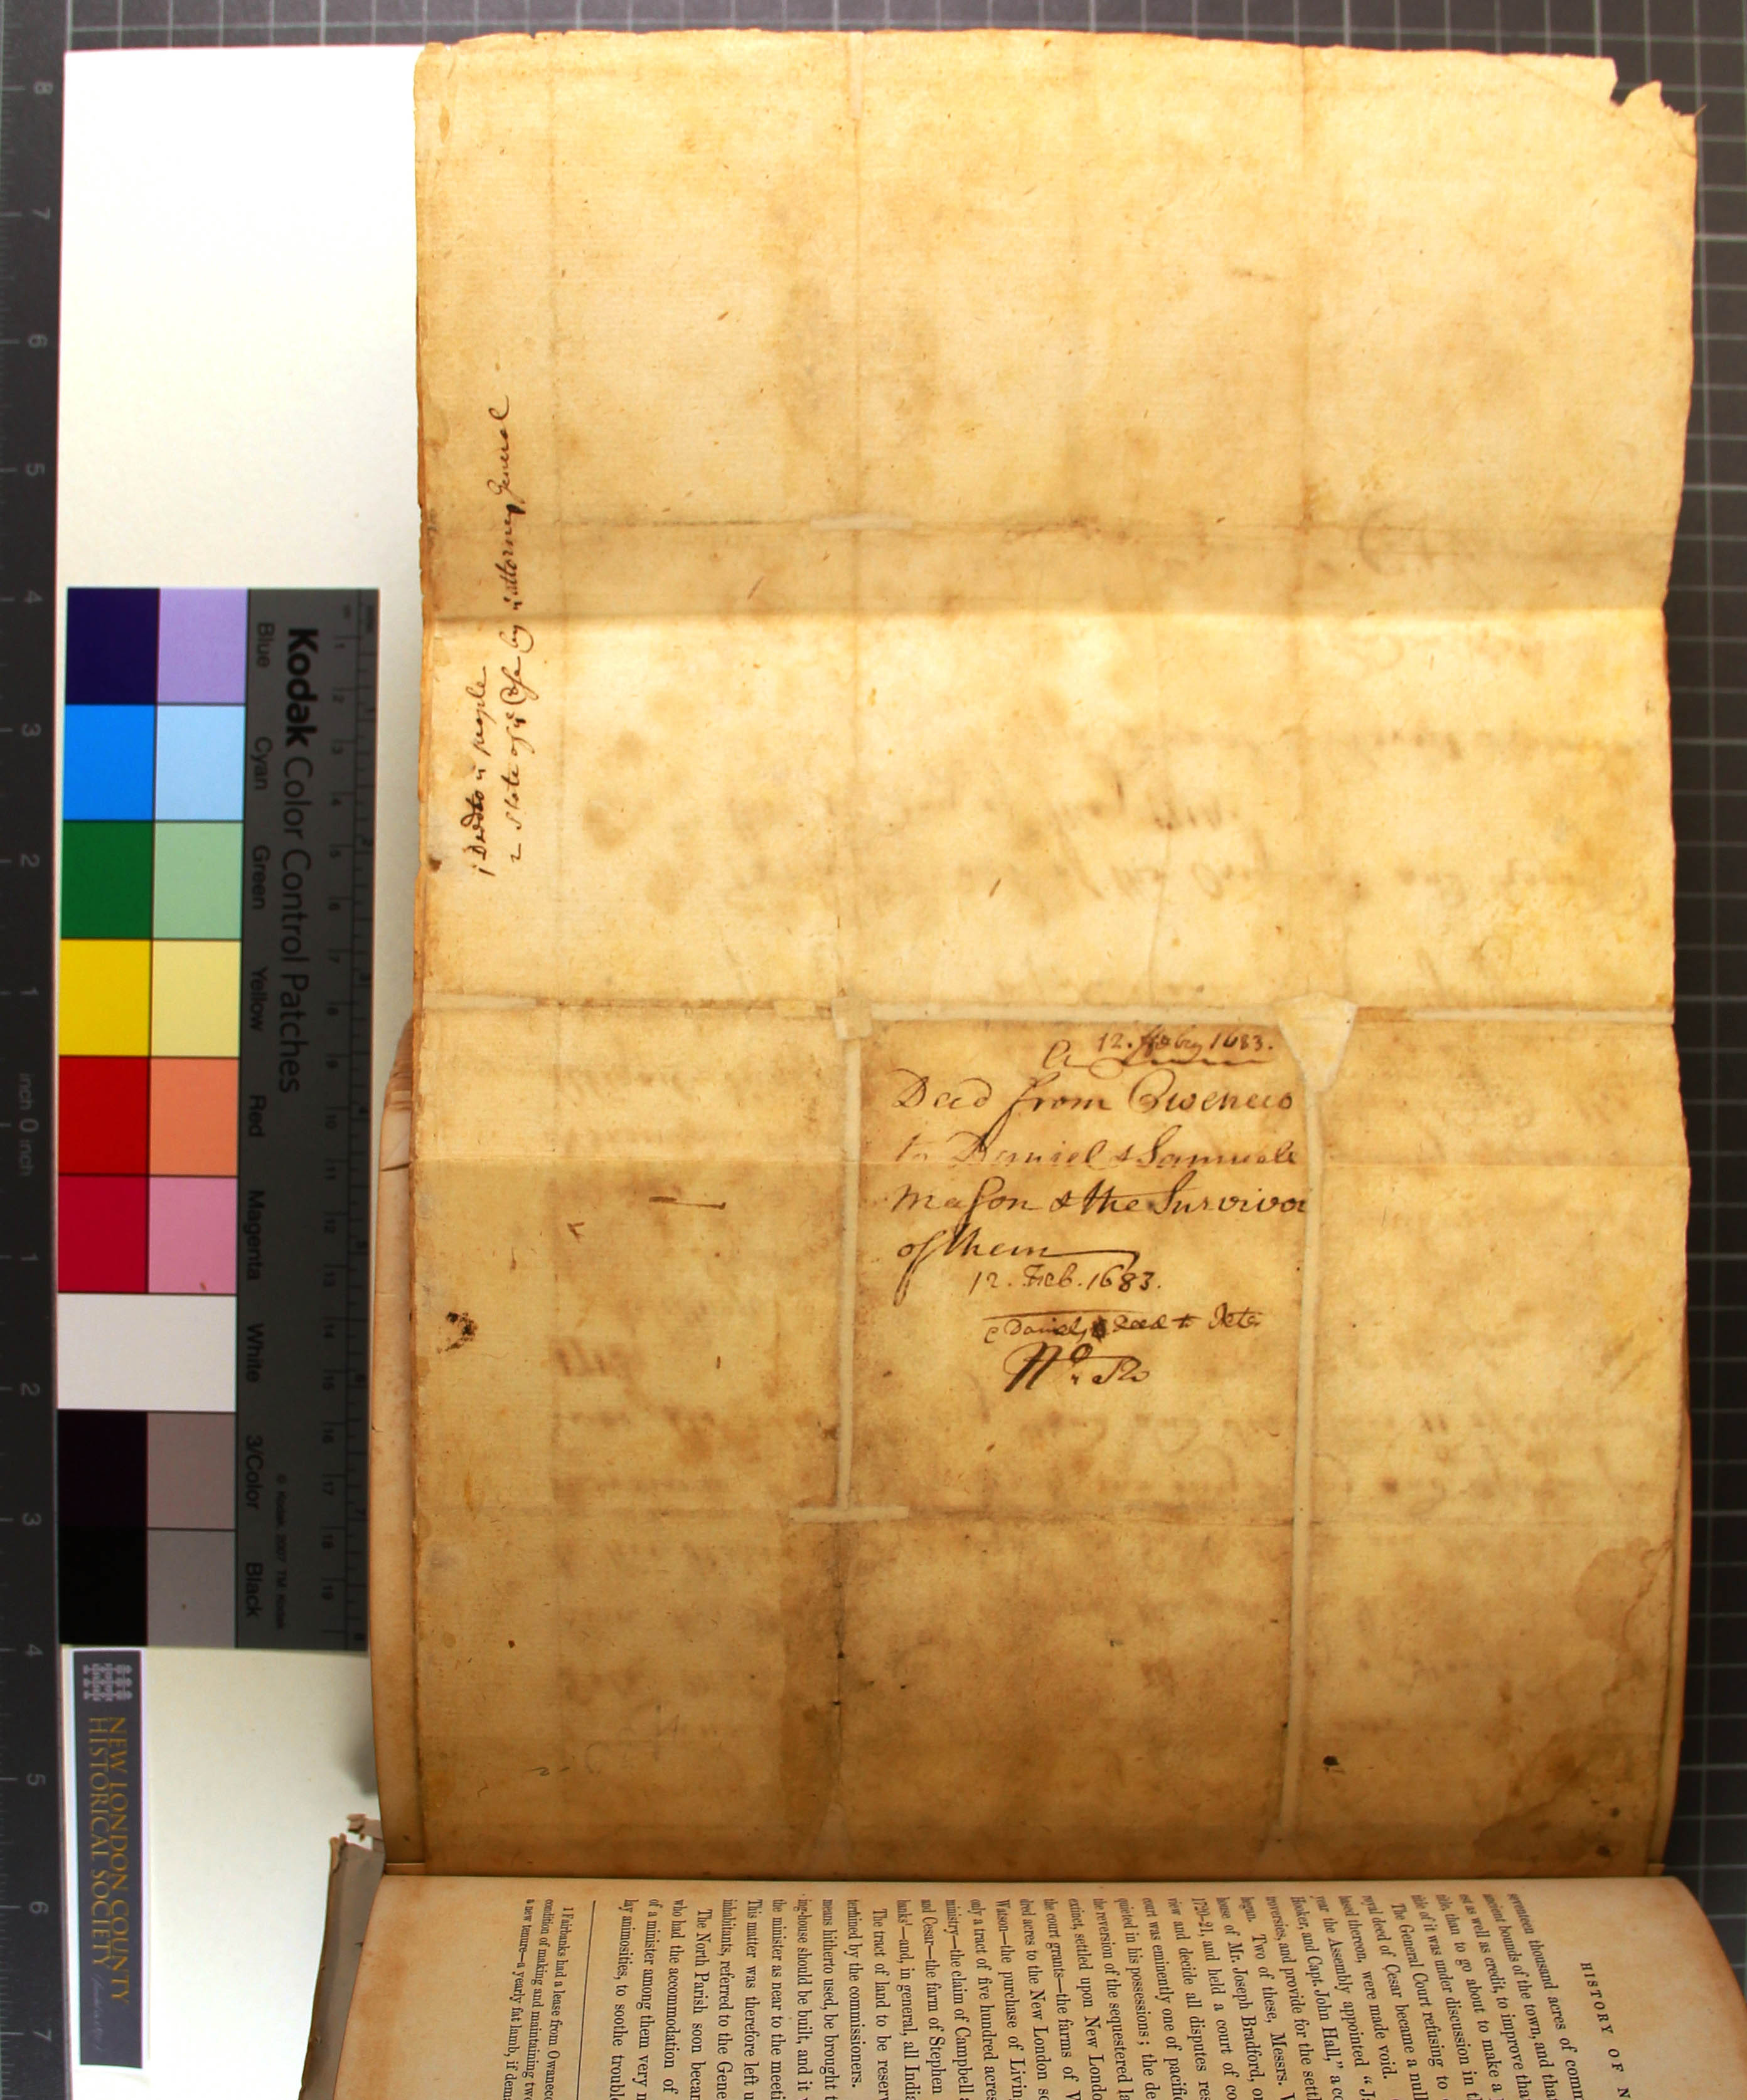 12. ffebry 1683.
A
Deed from Oweneco
to Daniel & Samuell
Mason & the Survivor
of them
12. Feb. 1683.
Daniels Deed to Peter
No.
people
2 State of ye Case by attorney General
Kodak Color Control Patches
Blue Cyan Green Yellow Red Magenta White 3/Color Black
© Kodak, 2007 TM: Kodak
NEW LONDON COUNTY
HISTORICAL SOCIETY
HISTORY OF N
seventeen thousand acres of com
ancient bounds of the town, and that
est as well as credit, to improve tha
nils, than to go about to make a
side of it was under discussion in t
The General Court refusing to
royal deed of Cesar became a null
based thereon, were made void.
year the Assembly appointed "J
Hooker, and Capt. John Hall," a co
troversies, and provide for the settl
began. Two of these, Messrs. W
house of Mr. Joseph Bradford, on
1720-21, and held a court of co
view and decide all disputes res
court was eminently one of pacific
quieted in his possessions; the de
the reversion of the sequestered la
extinct, settled upon New London
ded acres to the New London sc
the court grants—the farms of V
Watson—the purchase of Livin
only a tract of five hundred acres
ministry—the claim of Campbell
and Cesar—the farm of Stephen
banks¹—and, in general, all India
The tract of land to be reserv
termined by the commissioners.
means hitherto used, be brought t
ing-house should be built, and it
the minister as near to the meeti
This matter was therefore left u
inhabitants, referred to the Gene
The North Parish soon becam
who had the accommodation of
of a minister among them very n
lay animosities, to soothe troubl
1 Fairbanks had a lease from Owaneco
condition of making and maintaining two
a new tenure—a yearly fat lamb, if dem